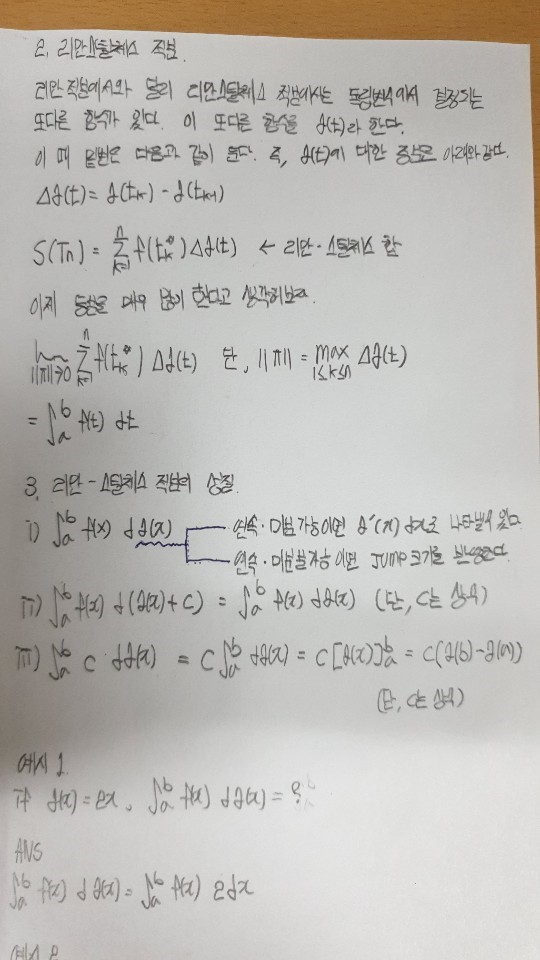 2. 리만스틸체스 적분.
리만적분에서와 달리 리만스틸체스 적분에서는 독립변수에서 결정되는
또다른 함수가 있다. 이 또다른 함수를 g(t)라 한다.
이 때 밑변은 다음과 같이 둔다. 즉, g(t)에 대한 증분은 아래와 같다.
Δg(t) = g(tₖ) - g(tₖ₋₁)
S(Tn) = Σₖ₌₁ⁿ f(tₖ*) Δg(t) ← 리만·스틸체스 합
이제 등분을 매우 많이 한다고 생각해보자.
lim ||π||→0 Σₖ₌₁ⁿ f(tₖ*) Δg(t) 단, ||π|| = max 1≤k≤n Δg(t)
= ∫ₐᵇ f(t) dt
3. 리만-스틸체스 적분의 성질.
i) ∫ₐᵇ f(x) dg(x) 연속·미분가능이면 g'(x) dx로 나타낼 수 있다.
연속·미분불가능이면 JUMP 크기를
ii) ∫ₐᵇ f(x) d(g(x)+c) = ∫ₐᵇ f(x) dg(x) (단, c는 상수)
iii) ∫ₐᵇ c dg(x) = c∫ₐᵇ dg(x) = c[g(x)]ₐᵇ = c(g(b)-g(a))
(단, c는 상수)
예시 1.
if g(x) = 2x, ∫ₐᵇ f(x) dg(x) = ?
ANS
∫ₐᵇ f(x) dg(x) = ∫ₐᵇ f(x) 2dx
예시 2